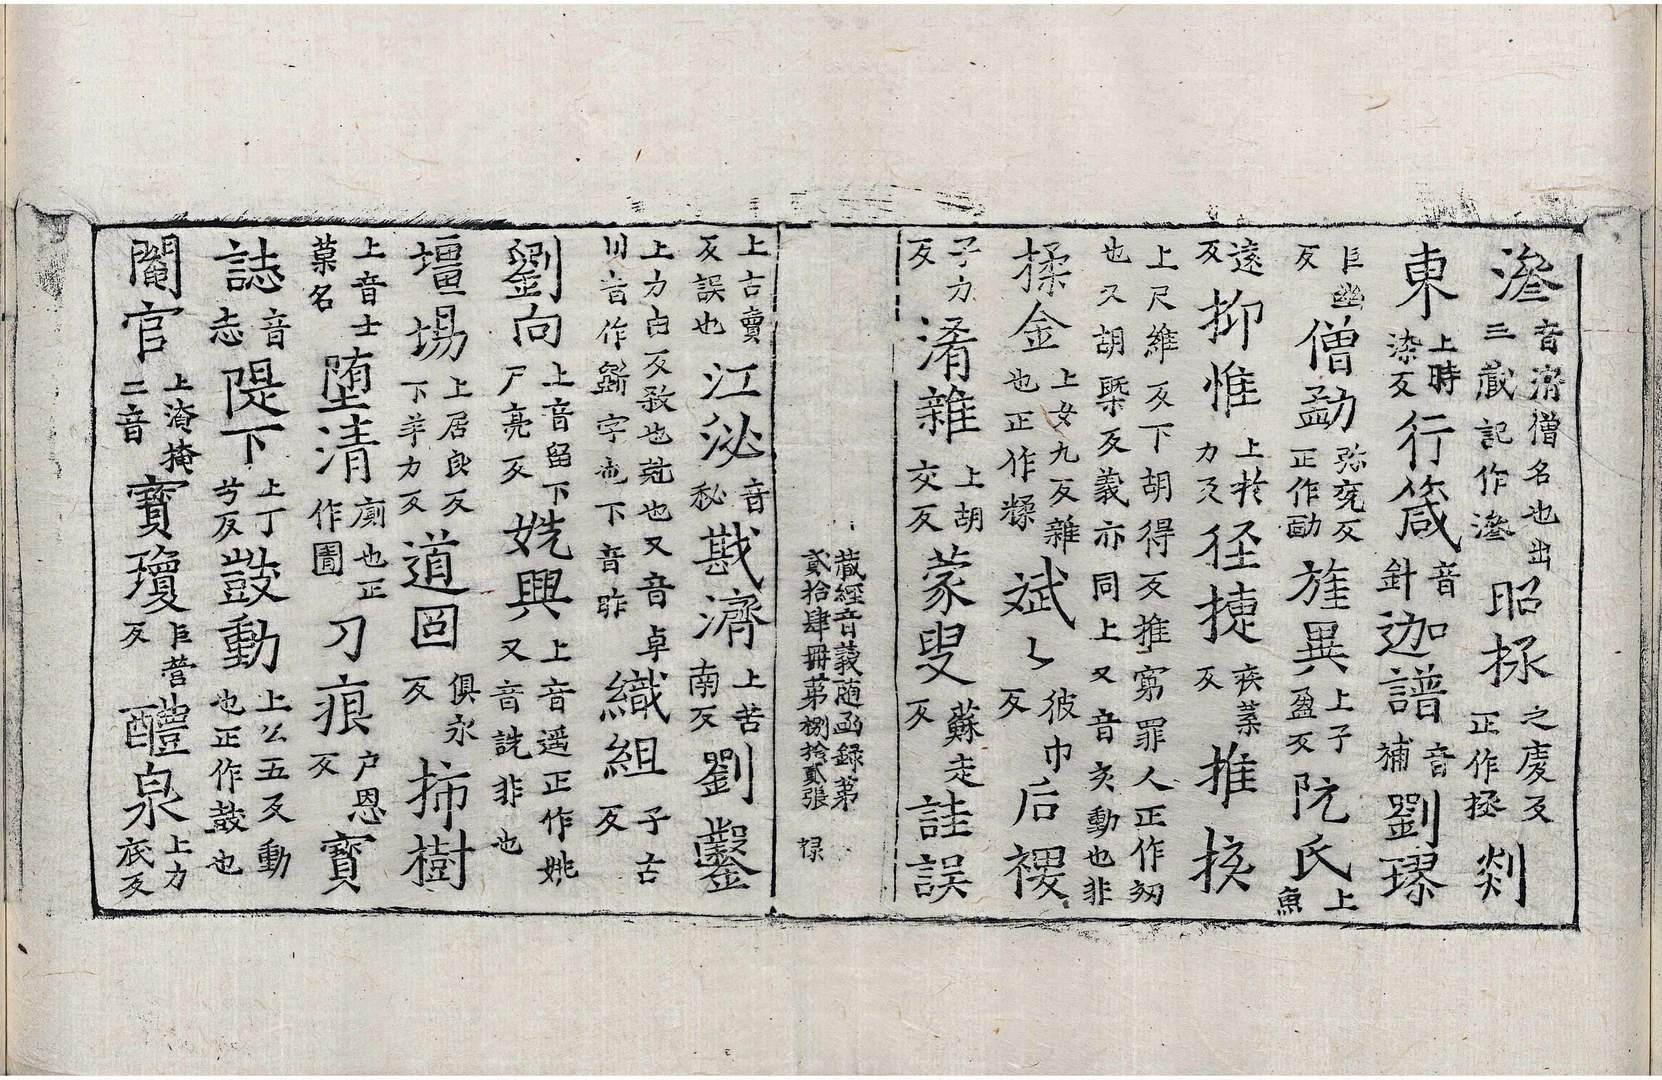 㴉音㳙僧名也出三藏記作㴉昭拯之庱反正作拯剡
東上時染反行箴音針迦譜音補劉璆
巨幽反僧勔弥兖反正作勔旌異上子盈反阮氏上魚
遠反抑惟上扵力反徑捷疾葉反推核
上尺維反下胡得反推窮罪人正作劾也又胡槩反義亦同上又音亥動也非
揉金上女九反雜也正作糅斌〻彼巾反后稷
子力反淆雜上胡交反蒙叟蘇走反詿誤
藏經音義随函録第貳拾肆冊第捌拾貳張 禄
上古賣反誤也江泌音秘戡濟上苦南反劉鑿
上力由反殺也尅也又音卓川音作斵字也下音昨織組子古反
劉向上音留下尸亮反姚興上音遥正作姚又音詵非也
壃場上居良反下羊力反道囧俱永反柿樹
上音士菓名堕清廁也正作圊刀痕户恩反寶
誌音志隄下上丁兮反鼓動上公五反動也正作鼓也
閹官上淹掩二音寶瓊巨營反醴泉上力底反